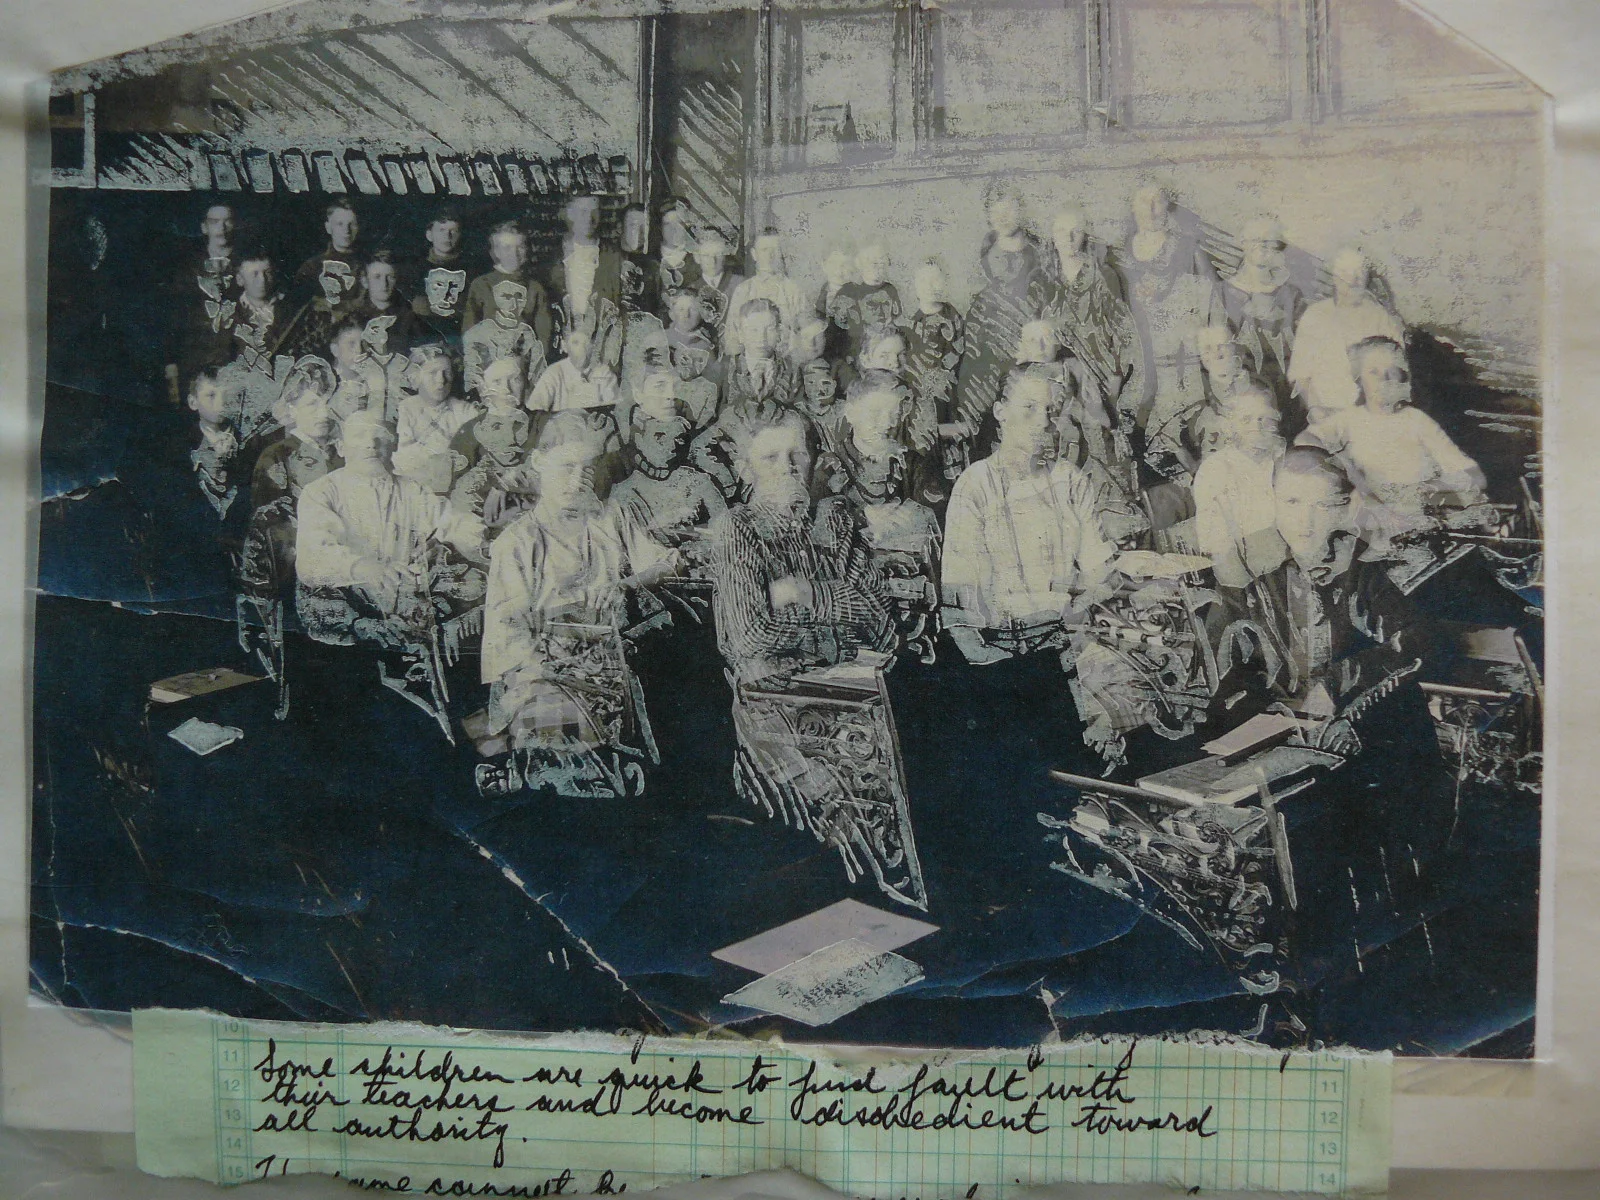 10
11 Some children are quick to find fault with 11
12 their teachers and become disobedient toward 12
13 all authority. 13
14 14
15 same cannot be